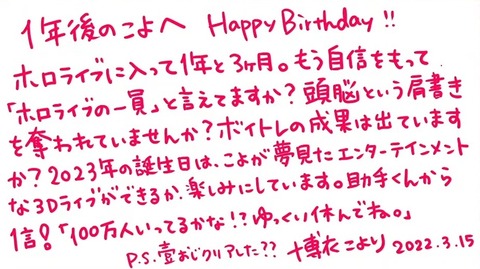 1年後のこよへ Happy Birthday!!
ホロライブに入って1年と3ヶ月。もう自信をもって
「ホロライブの一員」と言えてますか?頭脳という肩書き
を奪われていませんか?ボイトレの成果は出ています
か?2023年の誕生日は、こよが夢見たエンターテインメント
な3Dライブができるか、楽しみにしています。助手くんから
1信!「100万人いってるかな!?ゆっくり休んでね。」
P.S.壺おじクリアした?? 博衣こより 2022.3.15